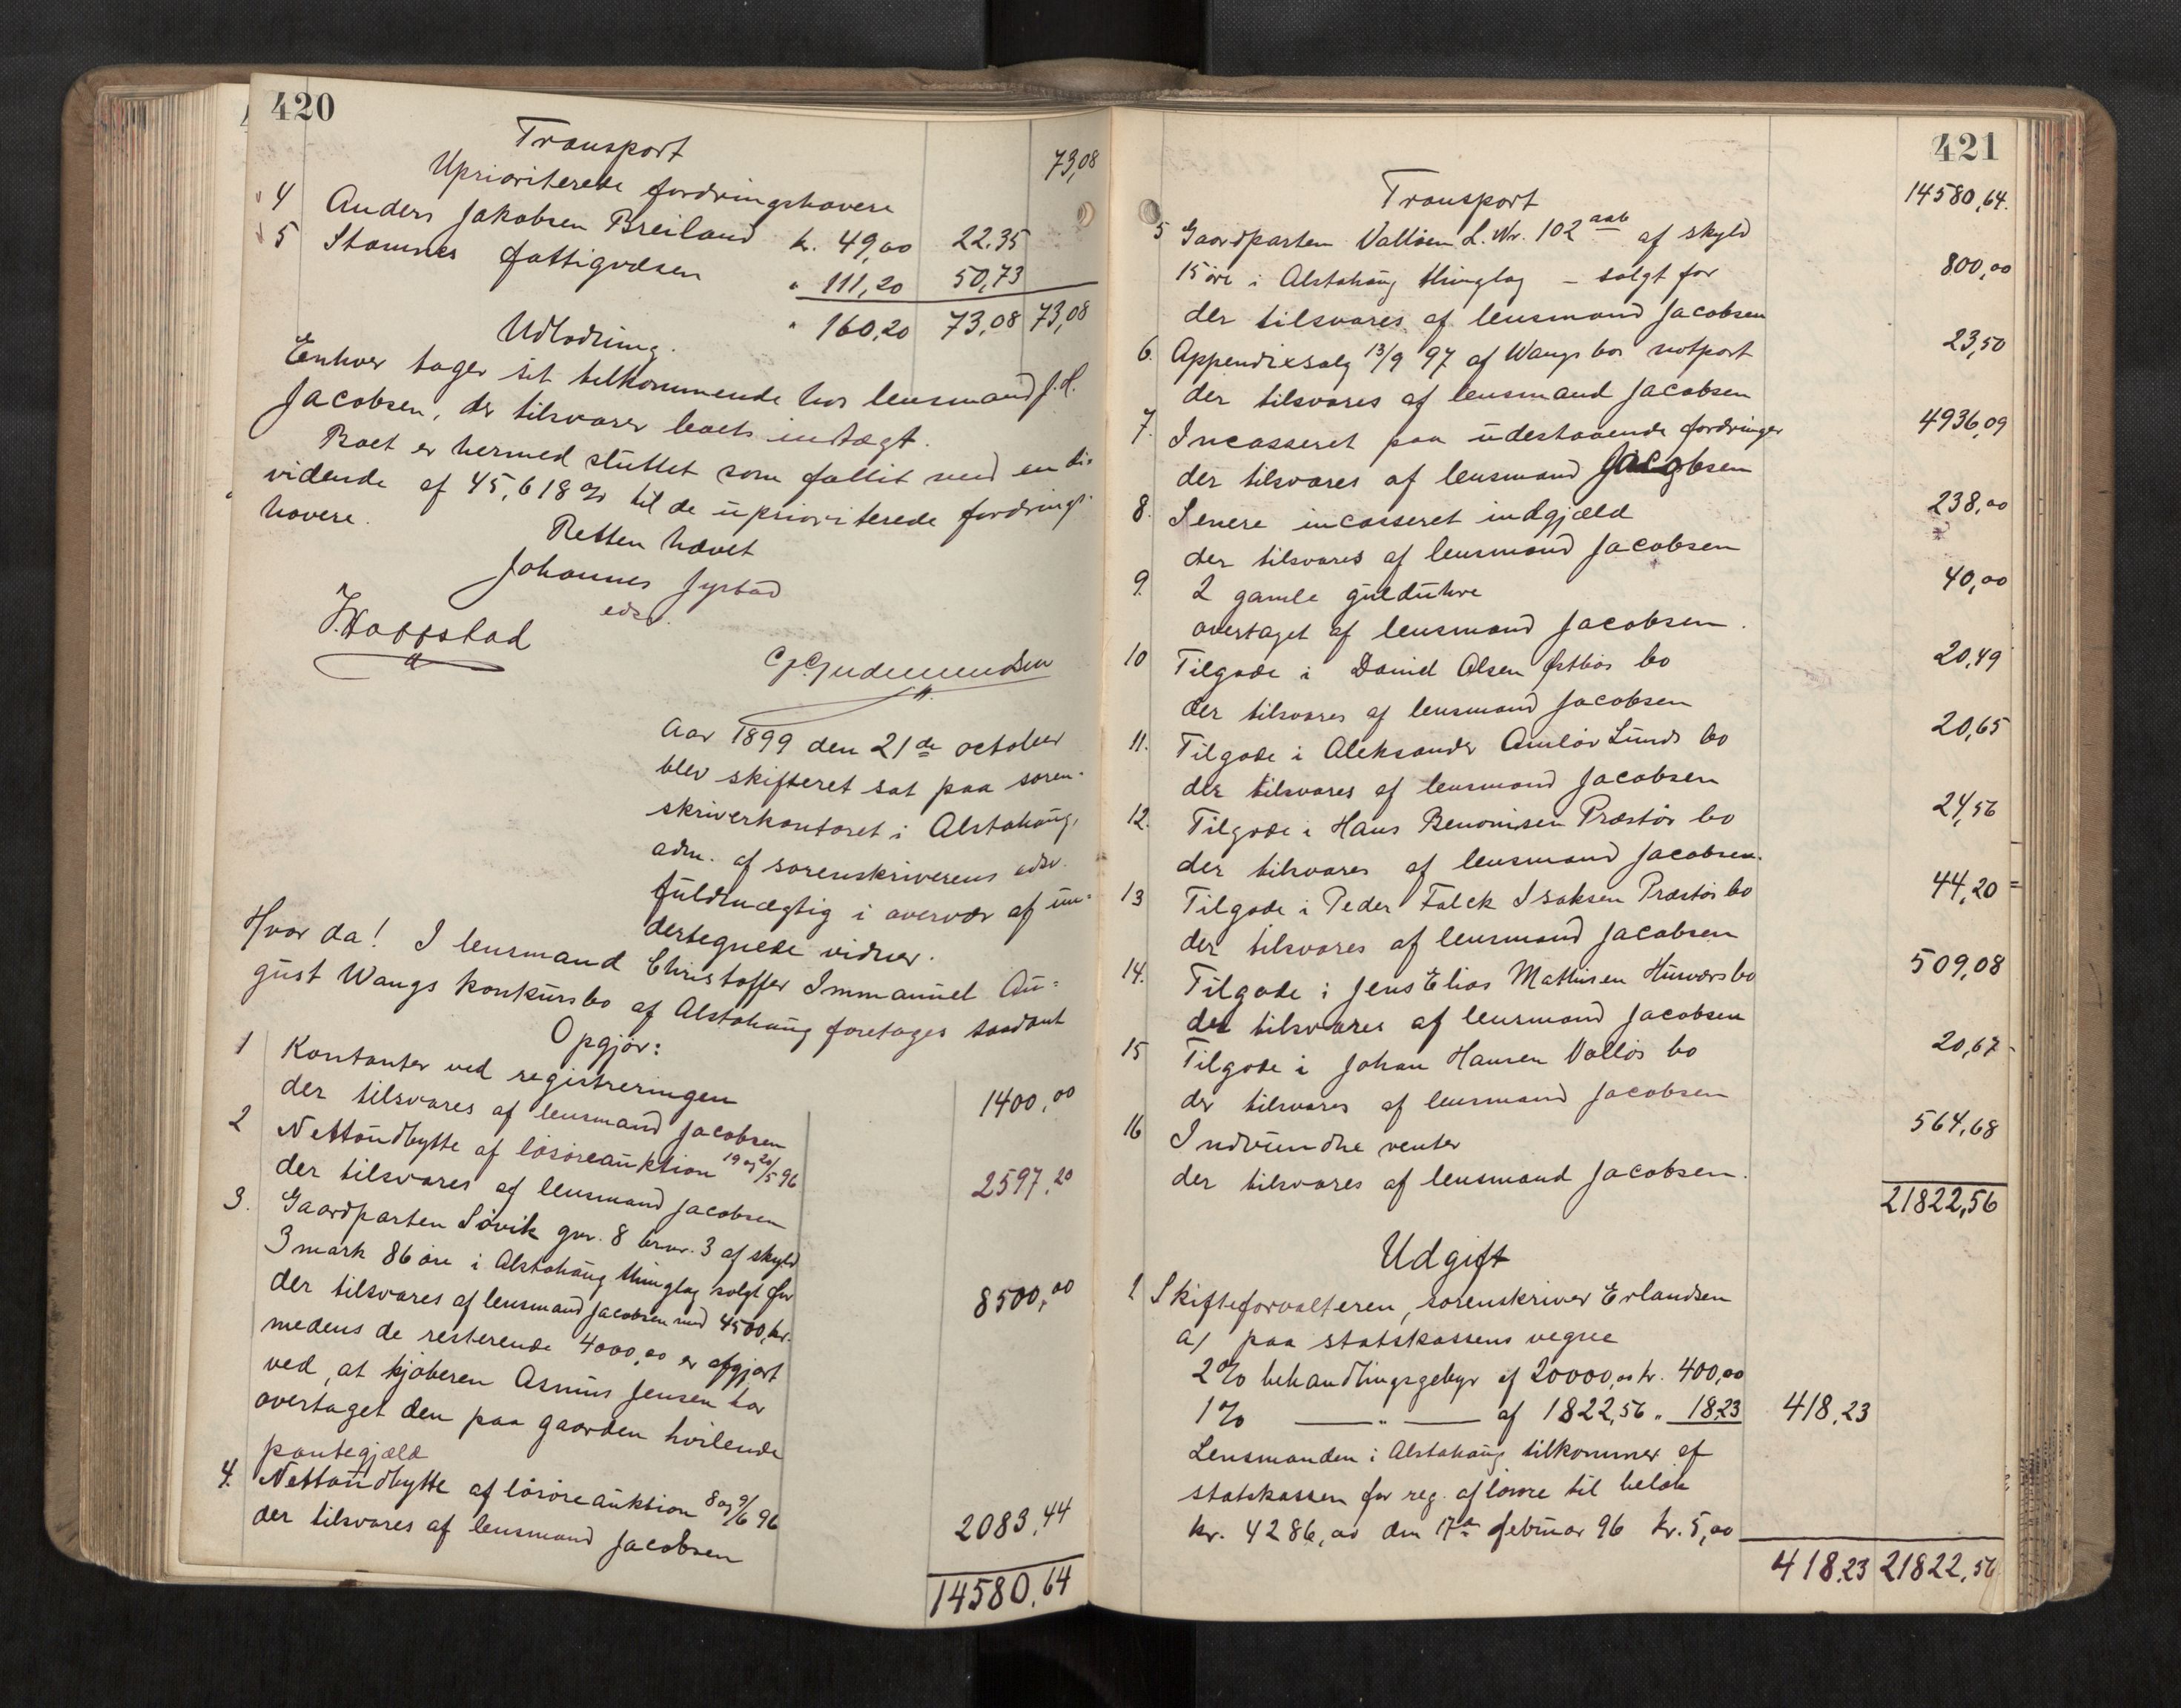 420
Transport 73,08
Uprioriterede fordringshavere
4 Anders Jakobsen Breiland k. 49,00 22.35
5 Stamnes fattigvæsen " 111,20 50,73
" 160,20 73,08 73,08
Udlodning.
Enhver tager sit tilkommende hos lensmand J.H.
Jacobsen, der tilsvarer boets indtægt.
Boet er hermed sluttet som fallit med en di-
vidende af 45,618 % til de uprioriterede fordrings-
havere.
Retten hævet
Johannes
eds.
Aar 1899 den 21de october
blev skifteret sat paa soren-
skriverkontoret i Alstahaug,
adm. af sorenskriverens edsv.
fuldmægtig i overvær af un-
dertegnede vidner.
Hvor da! I lensmand Christoffer Immanuel Au-
gust Wangs konkursbo af Alstahaug foretages saadant
Opgjør:
1 Kontanter ved registreringen 1400,00
der tilsvares af lensmand Jacobsen
2 Nettoudbytte af løsøreauktion 19 og 20/5 96 2597,20
der tilsvares af lensmand Jacobsen
3. Gaardparten Søvik gnr. 8 brnr. 3 af skyld
3 mark 86 øre i Alstahaug thinglag solgt for 8500,00
der tilsvares af lensmand Jacobsen med 4500, kr.
medens de resterende 4000,00 er afgjort
ved, at kjøberen Asmus Jensen har
overtaget den paa gaarden hvilende
pantegjæld
4. Nettoudbytte af løsøreauktion 8 og 9/6 96 2083,44
der tilsvares af lensmand Jacobsen
14580,64
421
Transport 14580,64.
5 Gaardparten Valløen L. Nr. 102 aab af skyld
15 øre i Alstahaug thinglag – solgt for 800,00
der tilsvares af lensmand Jacobsen
6. Appendixsalg 13/9 97 af Wangs bos notpart 23,50
der tilsvares af lensmand Jacobsen
7. Incasseret paa udestaaende fordringer 4936,09
der tilsvares af lensmand Jacobsen
8. Senere incasseret indgjæld 238,00
der tilsvares af lensmand Jacobsen
9. 2 gamle gulduhre 40,00
overtaget af lensmand Jacobsen.
10 Tilgode i Daniel Olsen Østbøs bo 20,49
der tilsvares af lensmand Jacobsen
11. Tilgode i Aleksander Amløv Lunds bo 20,65
der tilsvares af lensmand Jacobsen
12. Tilgode i Hans Benonisen Præstøs bo 24,56
der tilsvares af lensmand Jacobsen.
13 Tilgode i Peder Falck Isaksen Præstøs bo 44,20
der tilsvares af lensmand Jacobsen
14. Tilgode i Jens Elias Mathisen Husværs bo 509,08
der tilsvares af lensmand Jacobsen
15 Tilgode i Johan Hansen Valløs bo 20,67
der tilsvares af lensmand Jacobsen
16 Indvundne renter 564,68
der tilsvares af lensmand Jacobsen.
21822,56
Udgift
1 Skifteforvalteren, sorenskriver Erlandsen
a) paa statskassens vegne
2% behandlingsgebyr af 20000,00 kr. 400,00
1% —— " —— af 1822,56 " 18,23 418,23
Lensmanden i Alstahaug tilkommer af
statskassen for reg. af løsøre til beløb
kr. 4286,00 den 17de februar 96 kr. 5,00
418,23 21822,56